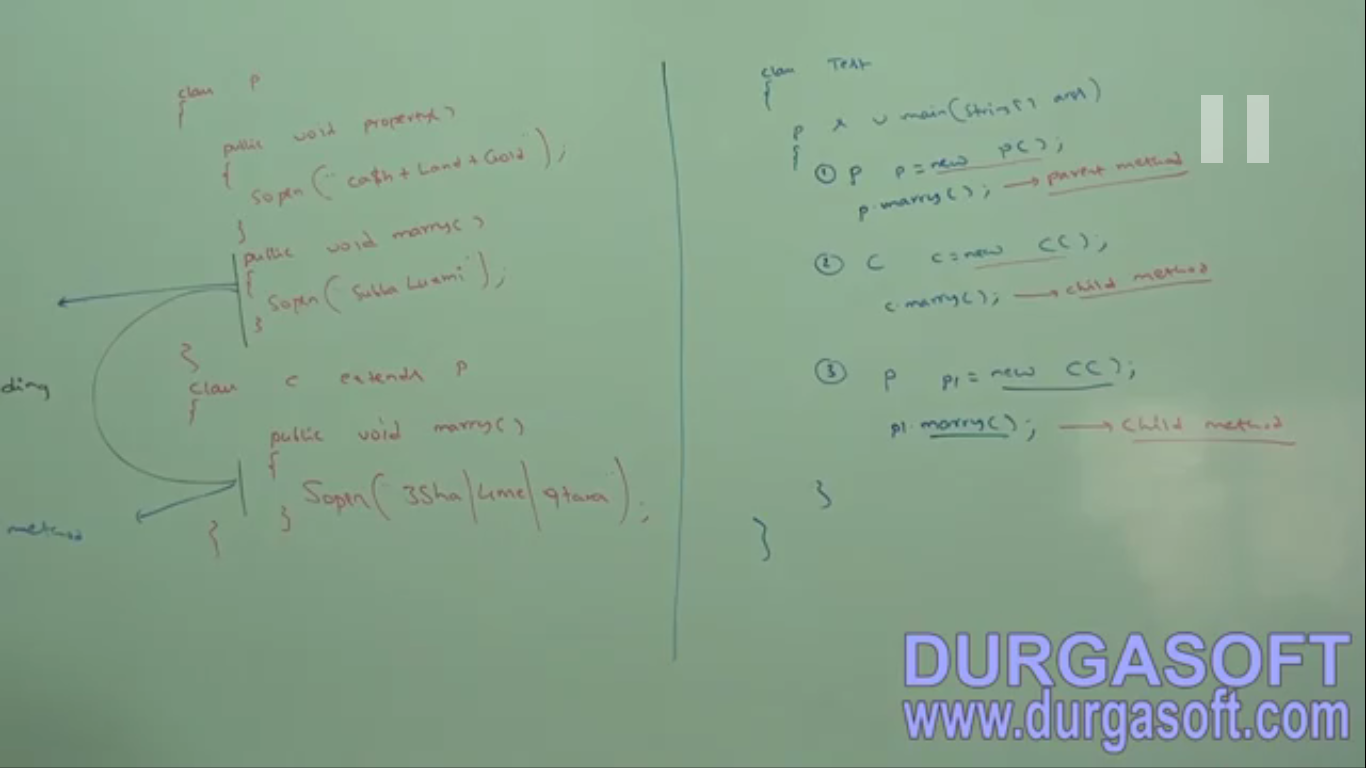 class P
{
public void property()
{
Sopln("cash+Land+Gold");
}
public void marry()
{
Sopln("Subba Luxmi");
}
}
class C extends P
{
public void marry()
{
Sopln("3Sha|4me|9tara");
}
}
ding
method
class Test
{
P S V main(String[] args)
{
① P p=new P();
p.marry(); → parent method
② C c=new C();
c.marry(); → child method
③ P p1=new C();
p1.marry(); → child method
}
}
DURGASOFT
www.durgasoft.com